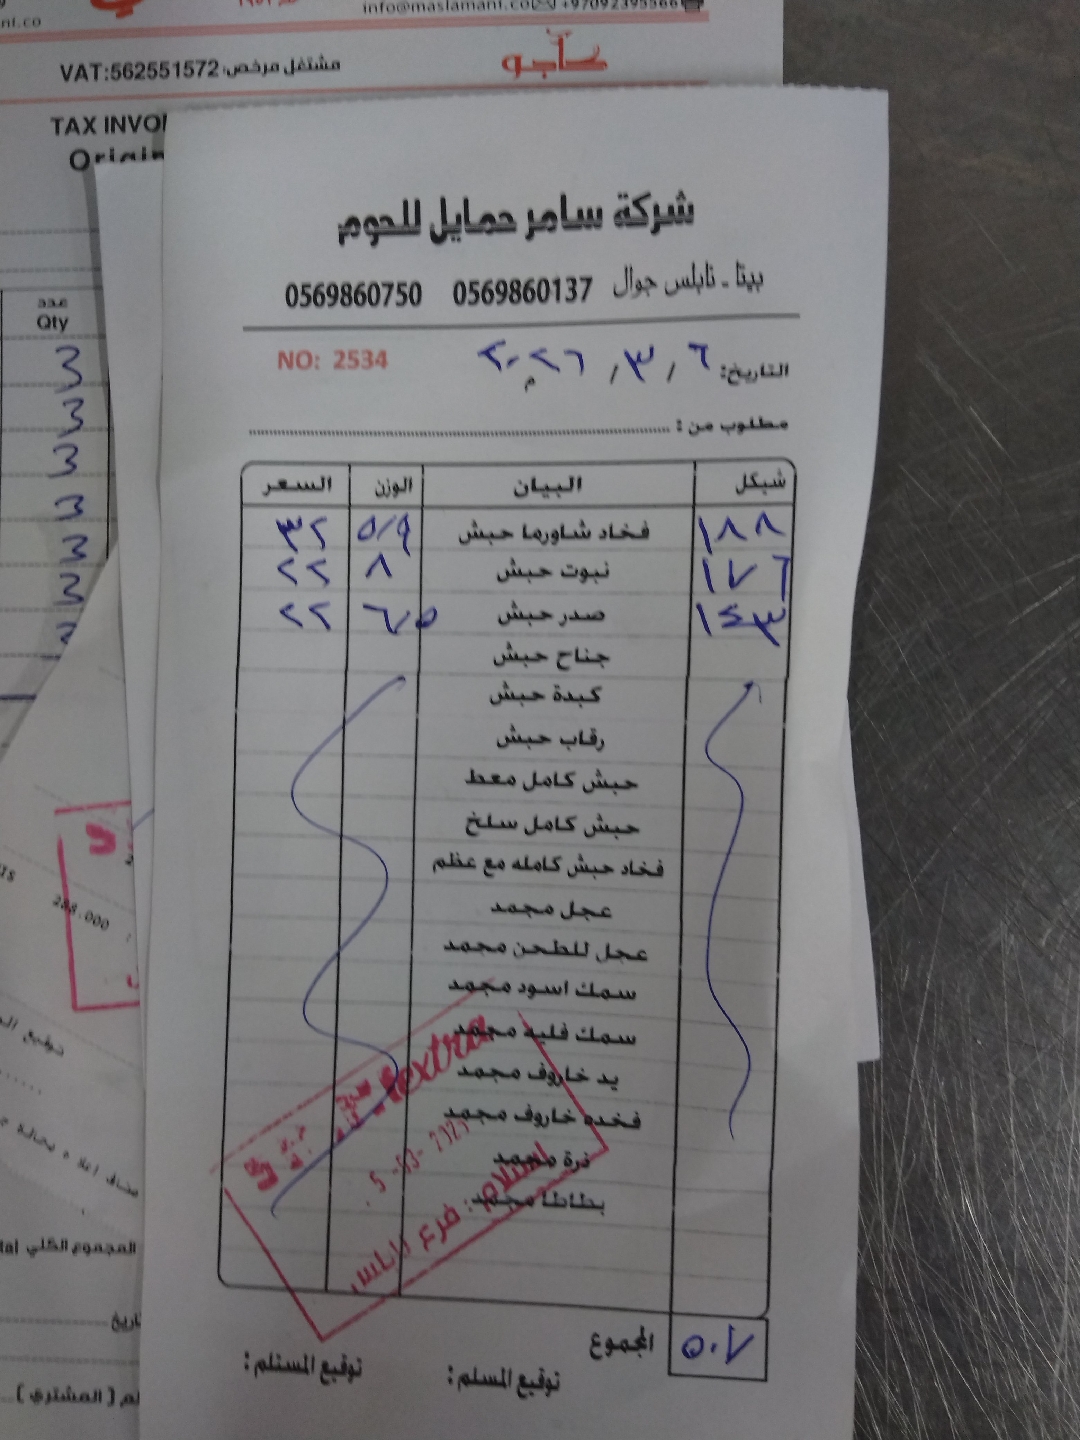 info@maslamani.co
+97092395566
VAT:562551572 مشتغل مرخص:
TAX INVOI
Origin
عدد
Qty
3
3
3
3
3
3
شركة سامر حمايل للحوم
بيتا - نابلس جوال 0569860137 0569860750
NO: 2534
التاريخ: ٦ / ٣ / ٢٠٢٦م
مطلوب من :
شيكل البيان الوزن السعر
١٨٨ فخاد شاورما حبش ٥/٩ ٣٢
١٧٦ نبوت حبش ٨ ٢٢
١٤٣ صدر حبش ٦/٥ ٢٢
جناح حبش
كبدة حبش
رقاب حبش
حبش كامل معط
حبش كامل سلخ
فخاد حبش كامله مع عظم
عجل مجمد
عجل للطحن مجمد
سمك اسود مجمد
سمك فليه مجمد
يد خاروف مجمد
فخده خاروف مجمد
ذرة مجمد
بطاطا مجمد
extra
استلام : فرع نابلس
المجموع ٥٠٧
توقيع المسلم : توقيع المستلم :
288.000
المجموع الكلي